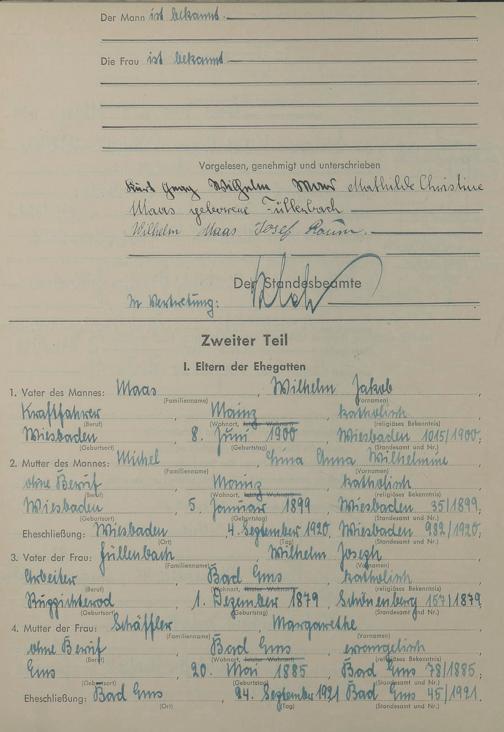 Der Mann ist bekannt
Die Frau ist bekannt
Vorgelesen, genehmigt und unterschrieben
Wilhelm Maas Mathilde Christine
Maas geborene Füllenbach
Wilhelm Maas Josef
Der Standesbeamte
In Vertretung:
Zweiter Teil
I. Eltern der Ehegatten
1. Vater des Mannes: Maas, Wilhelm Jakob
(Familienname) (Vornamen)
Kraftfahrer, Mainz, katholisch
(Beruf) (Wohnort, letzter Wohnort) (religiöses Bekenntnis)
Wiesbaden, 8. Juni 1900, Wiesbaden 1015/1900;
(Geburtsort) (Geburtstag) (Standesamt und Nr.)
2. Mutter des Mannes: Michel, Anna Wilhelmine
(Familienname) (Vornamen)
ohne Beruf, Mainz, katholisch
(Beruf) (Wohnort, letzter Wohnort) (religiöses Bekenntnis)
Wiesbaden, 5. Januar 1899, Wiesbaden 35/1899;
(Geburtsort) (Geburtstag) (Standesamt und Nr.)
Eheschließung: Wiesbaden, 4. September 1920, Wiesbaden 982/1920;
(Ort) (Tag) (Standesamt und Nr.)
3. Vater der Frau: Füllenbach, Wilhelm Joseph
(Familienname) (Vornamen)
Arbeiter, Bad Ems, katholisch
(Beruf) (Wohnort, letzter Wohnort) (religiöses Bekenntnis)
1. Dezember 1879, Schönenberg 157/1879,
(Geburtsort) (Geburtstag) (Standesamt und Nr.)
4. Mutter der Frau: Schäffler, Margarethe
(Familienname) (Vornamen)
ohne Beruf, Bad Ems, evangelisch
(Beruf) (Wohnort, letzter Wohnort) (religiöses Bekenntnis)
Ems, 20. Mai 1885, Bad Ems 78/1885;
(Geburtsort) (Geburtstag) (Standesamt und Nr.)
Eheschließung: Bad Ems, 24. September 1921 Bad Ems 45/1921.
(Ort) (Tag) (Standesamt und Nr.)